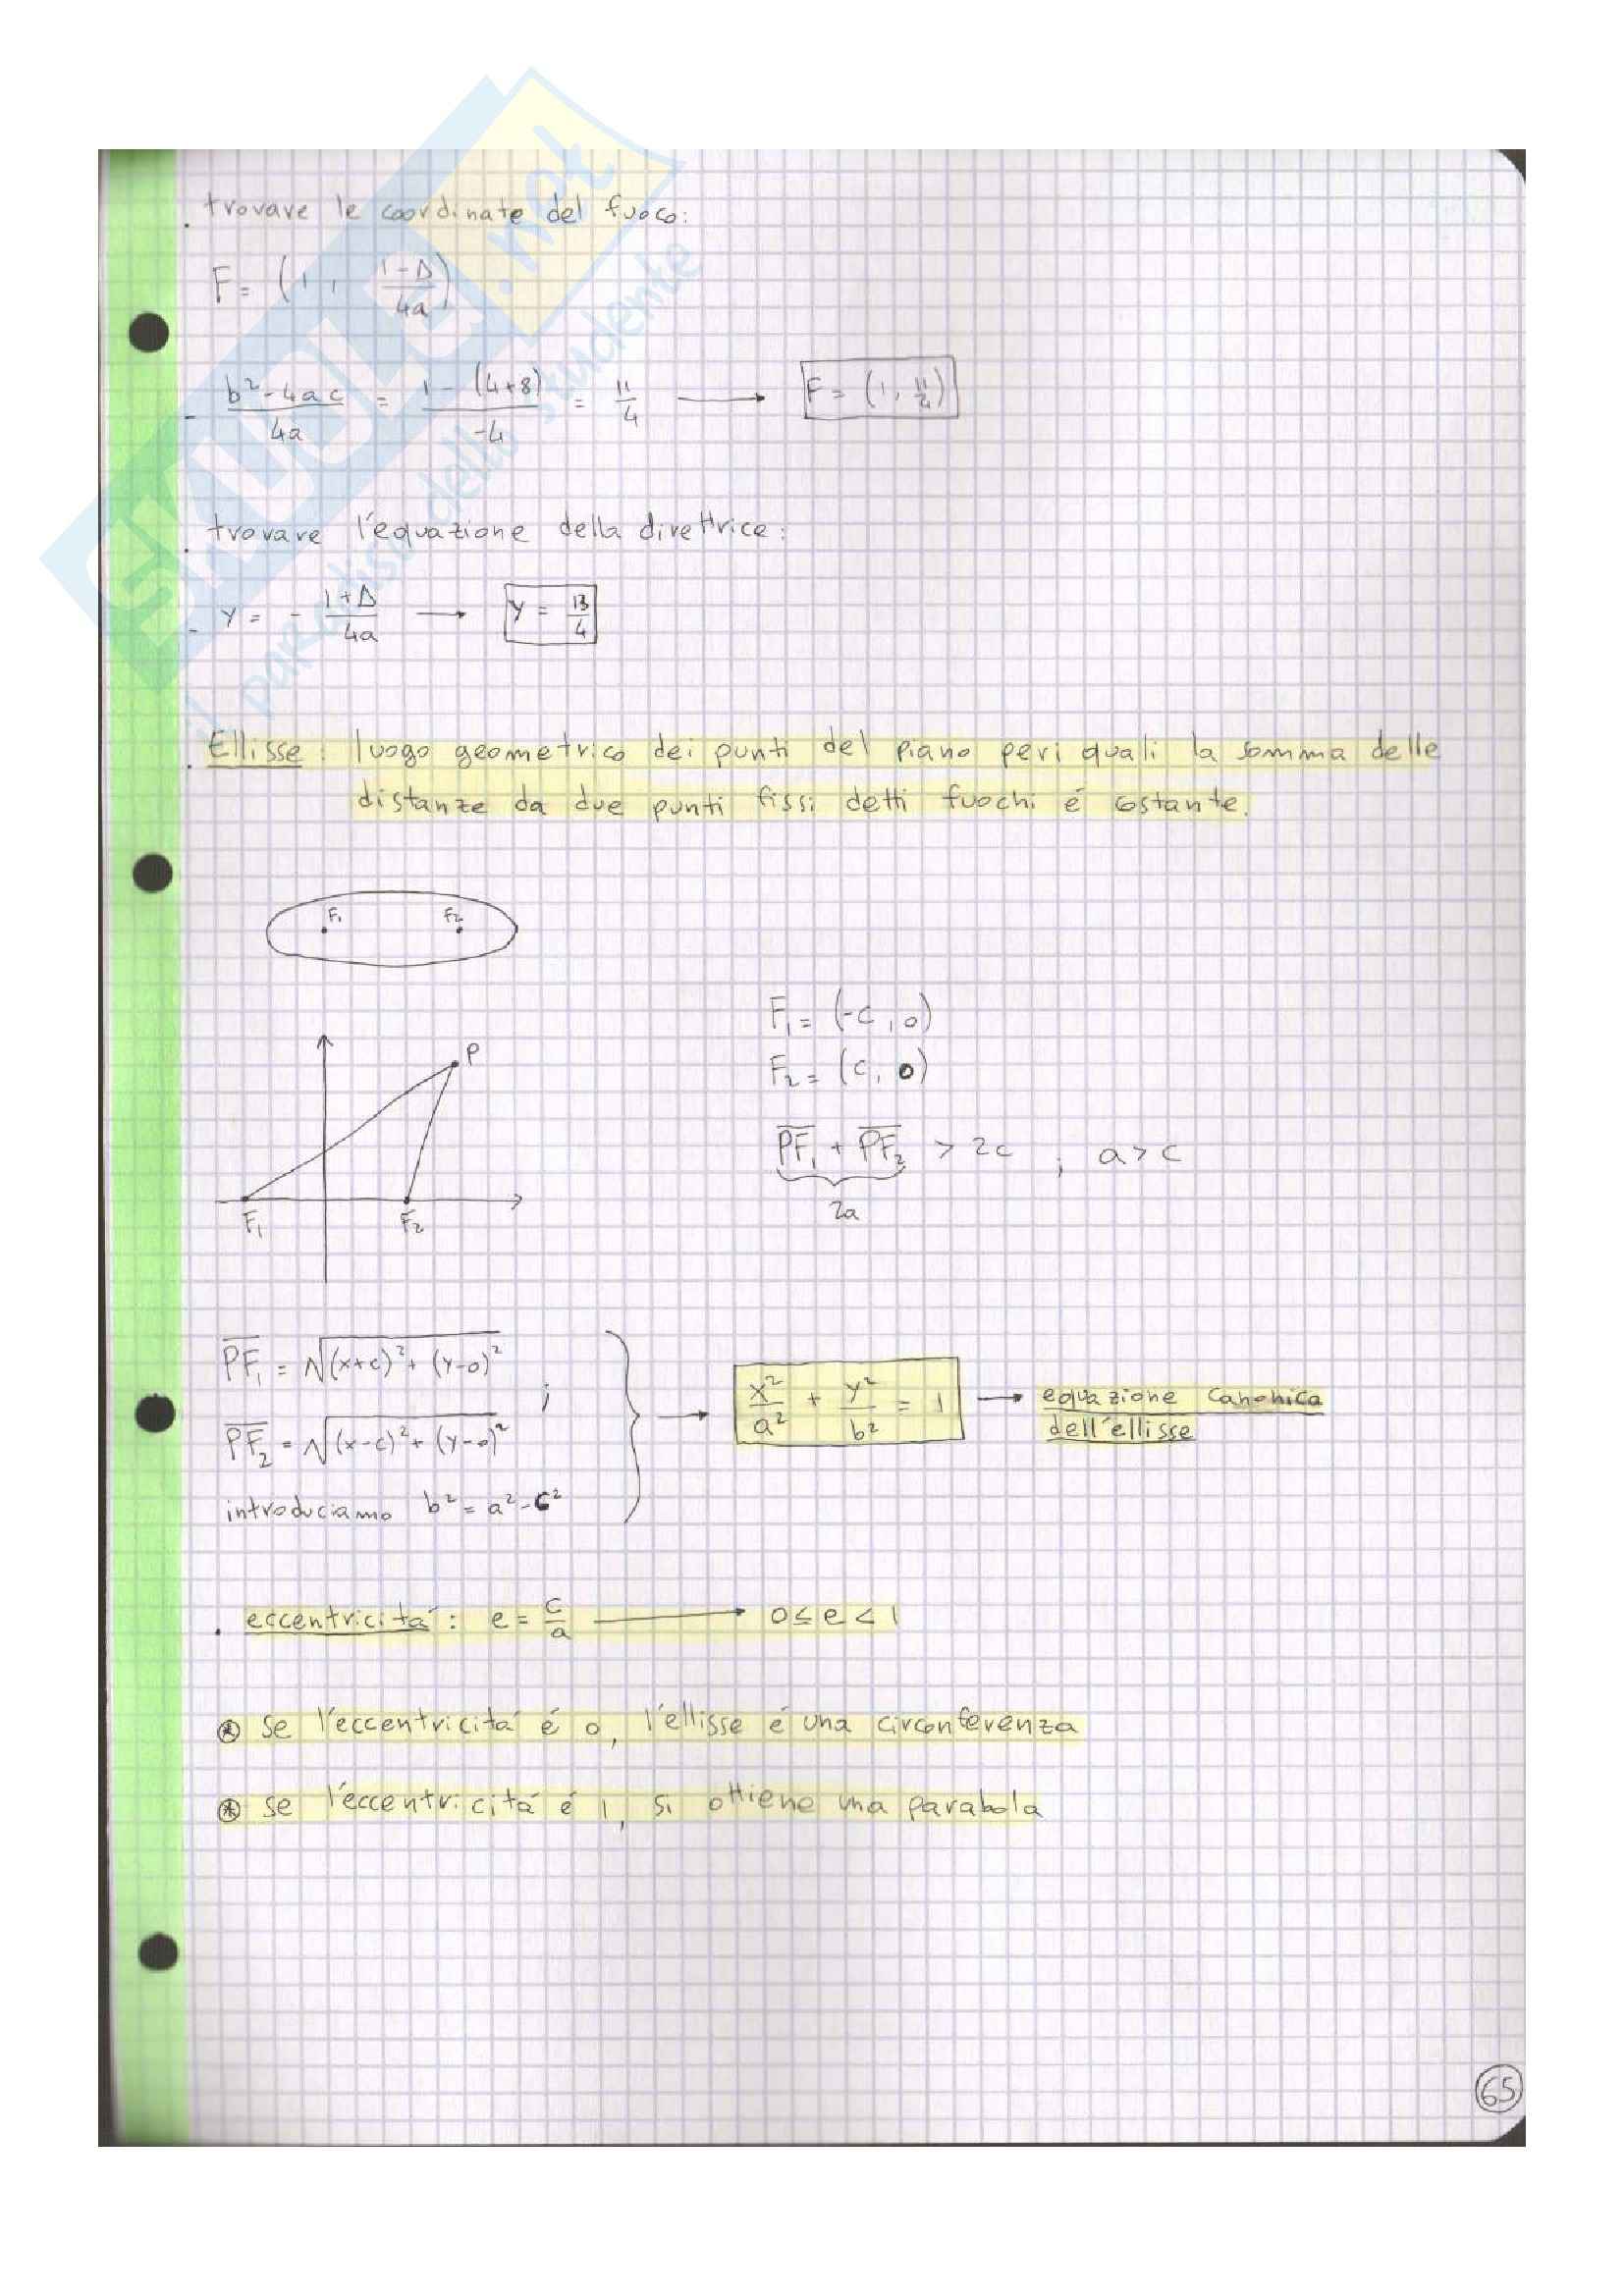 trovare le coordinate del fuoco:
F = (1, (1-Δ)/4a)
(b²-4ac)/4a = (1-(4+8))/-4 = 11/4 → F = (1, 11/4)
trovare l'equazione della direttrice:
y = - (1+Δ)/4a → y = 13/4
Ellisse: luogo geometrico dei punti del piano per i quali la somma delle
distanze da due punti fissi detti fuochi é costante.
F₁ F₂
F₁ = (-c, 0)
P
F₂ = (c, 0)
PF₁ + PF₂ > 2c ; a > c
2a
F₁ F₂
PF₁ = √(x+c)² + (y-0)² ;
PF₂ = √(x-c)² + (y-0)²
x²/a² + y²/b² = 1 → equazione canonica
dell'ellisse
introduciamo b² = a² - c²
eccentricitá: e = c/a → 0 ≤ e < 1
⊛ se l'eccentricitá é 0, l'ellisse é una circonferenza
⊛ se l'eccentricitá é 1, si ottiene una parabola
65
SKUOLA.net
il paradiso dello studente